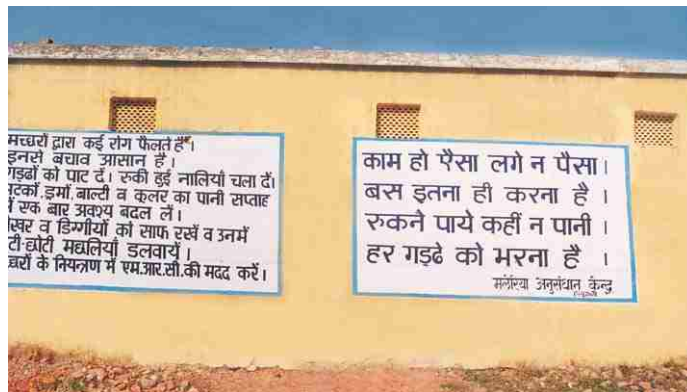 मच्छरों द्वारा कई रोग फैलते हैं।
इनसे बचाव आसान है।
गड्ढों को पाट दें। रुकी हुई नालियाँ चला दें।
मटकों, ड्रमों, बाल्टी व कूलर का पानी सप्ताह
में एक बार अवश्य बदल लें।
व डिग्गीयों को साफ रखें व उनमें
छोटी मछलियाँ डलवायें।
के नियन्त्रण में एम.आर.सी. की मदद करें।
काम हो ऐसा लगे न पैसा।
बस इतना ही करना है।
रुकने पाये कहीं न पानी।
हर गड्ढे को भरना है।
मलेरिया अनुसंधान केन्द्र